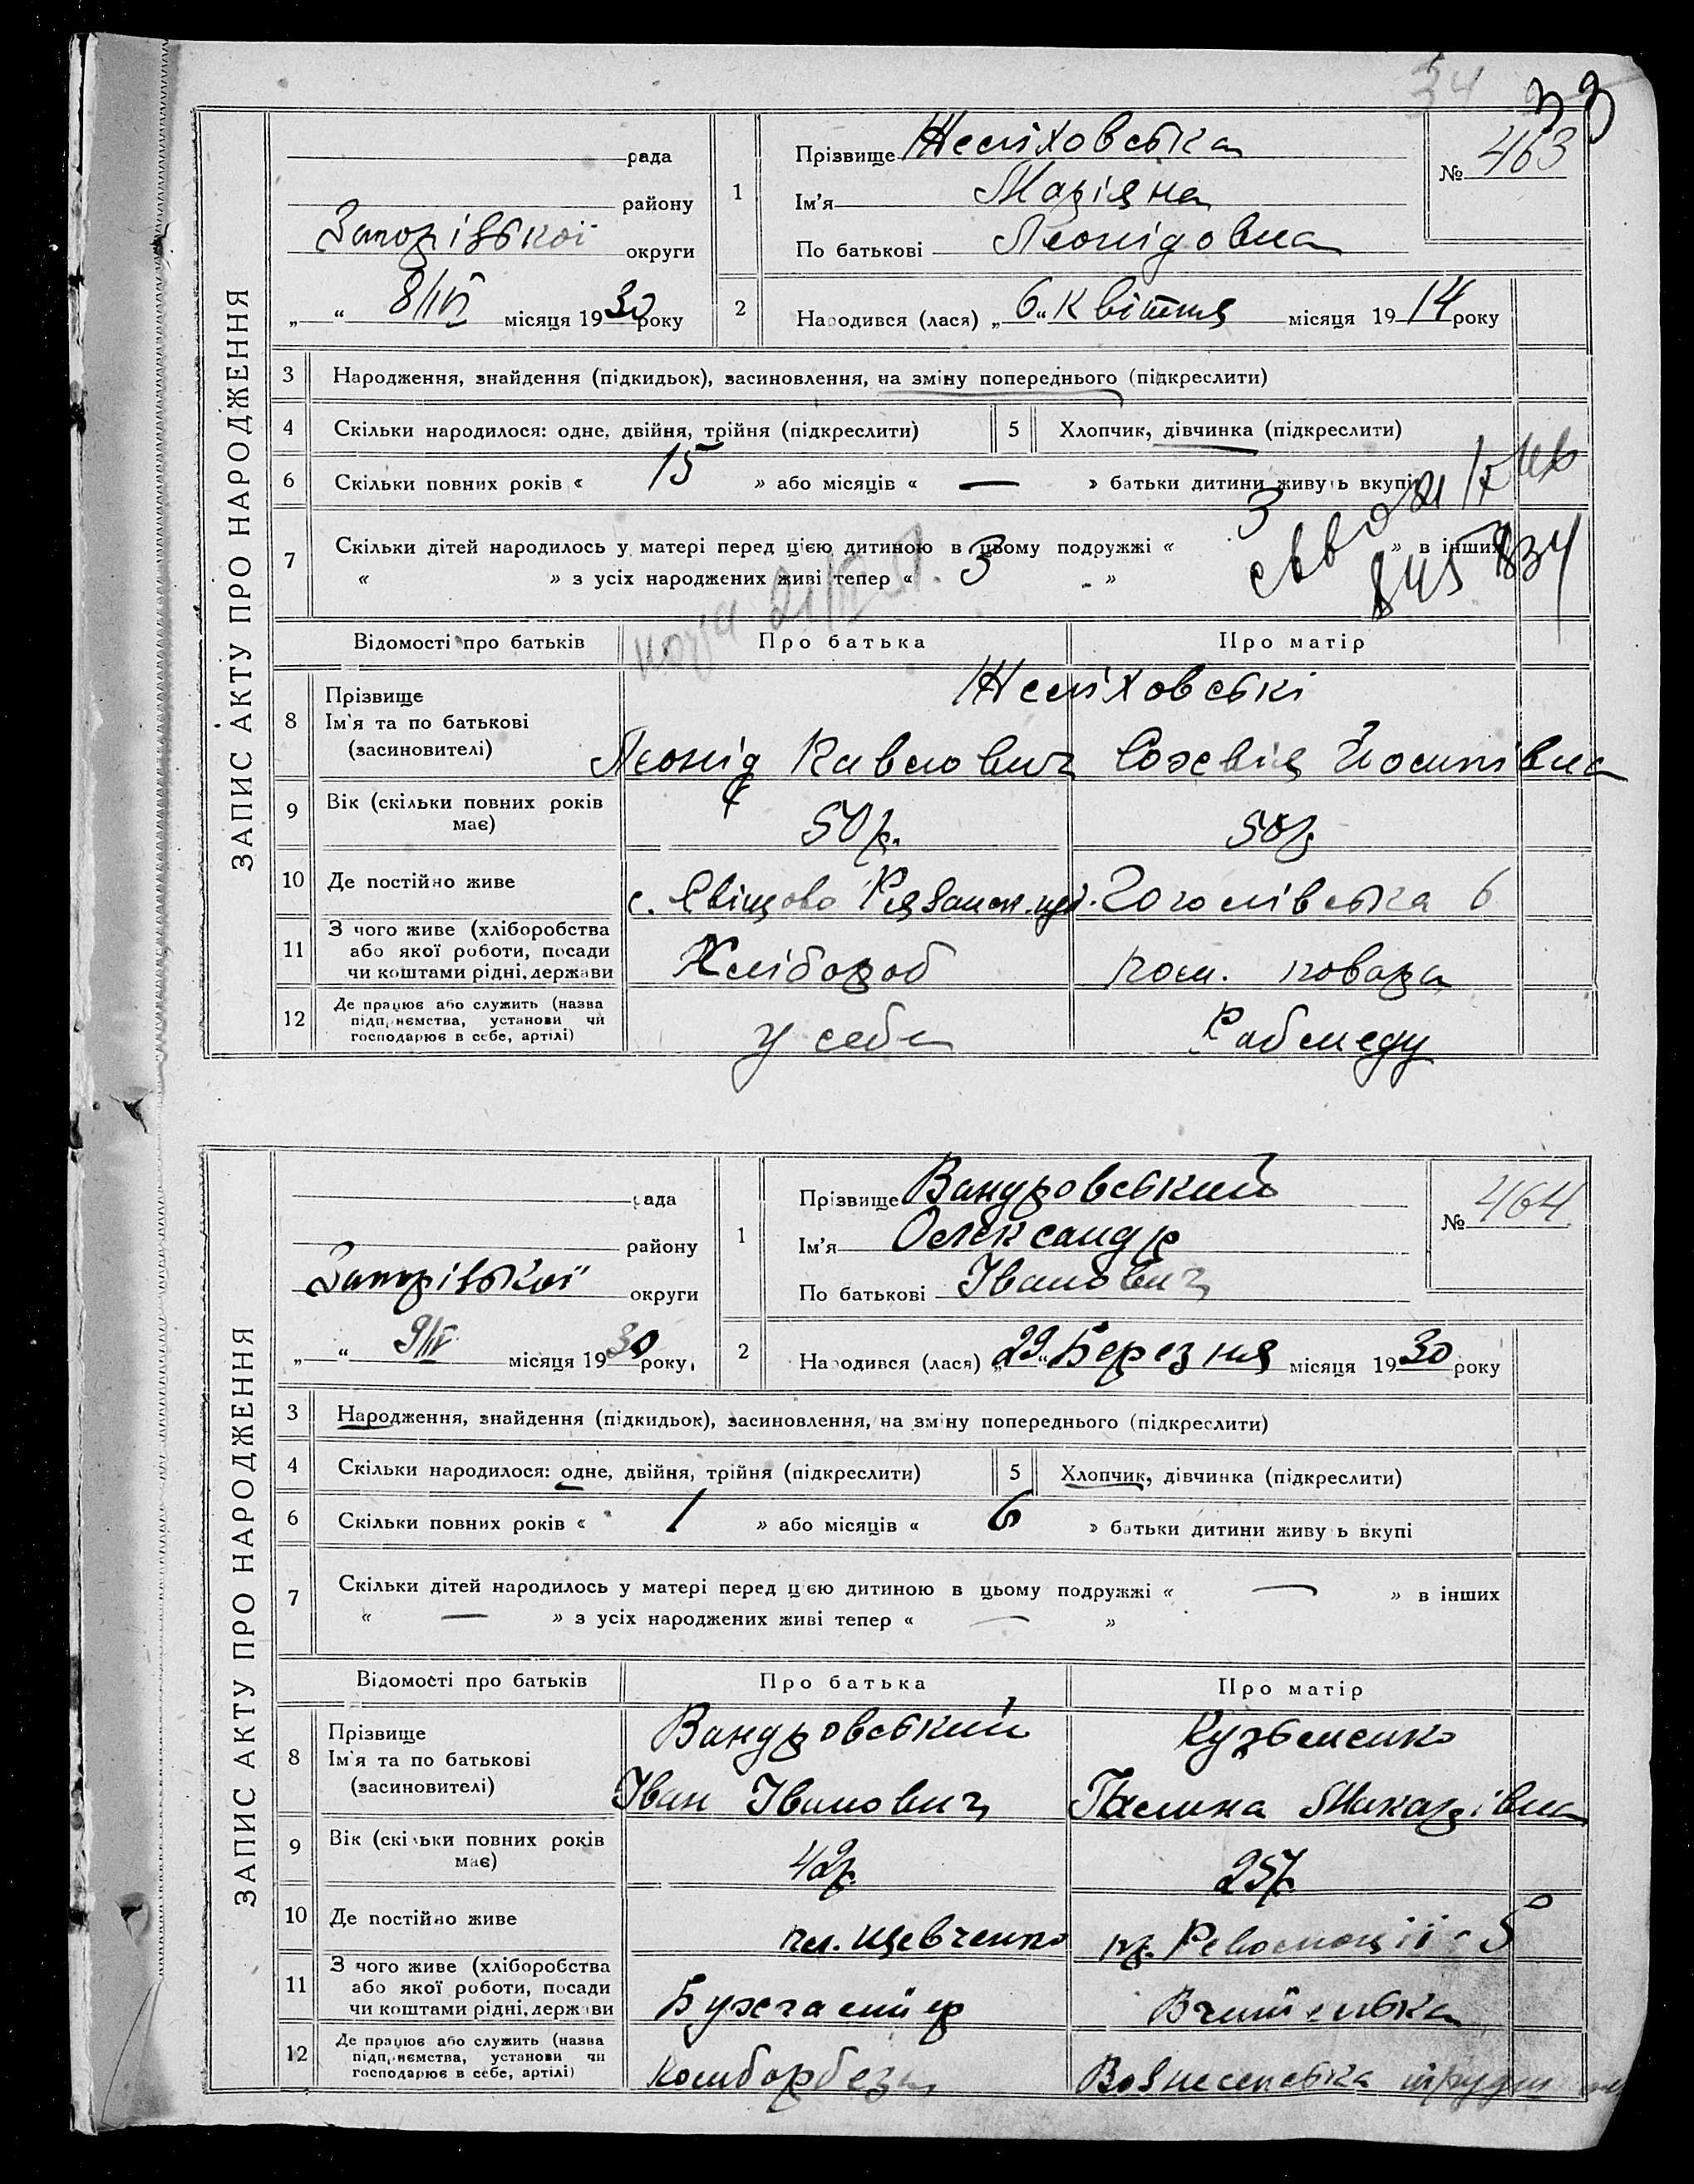 34
33
ЗАПИС АКТУ ПРО НАРОДЖЕННЯ
рада
району
Запорізької округи
„ “ 8/IV місяця 1930 року
1
Прізвище Желіховська
Ім'я Маріяна
По батькові Леонідовна
№ 463
2
Народився (лася) „6“ квітня місяця 1914 року
3 Народження, знайдення (підкидьок), засиновлення, на зміну попереднього (підкреслити)
4 Скільки народилося: одне, двійня, трійня (підкреслити)
5 Хлопчик, дівчинка (підкреслити)
6 Скільки повних років « 15 » або місяців « — » батьки дитини живуть вкупі
7 Скільки дітей народилось у матері перед цією дитиною в цьому подружжі « 3 » в інших
« » з усіх народжених живі тепер « 3 »
845834
Відомості про батьків Про батька Про матір
8 Прізвище
Ім'я та по батькові
(засиновителі)
Желіховські
Леонід Павлович Йосипівна
9 Вік (скільки повних років має) 50 р. 50 р
10 Де постійно живе с. Гоголівська 6
11 З чого живе (хліборобства або якої роботи, посади чи коштами рідні, держави Хлібороб пом. повара
12 Де працює або служить (назва підприємства, установи чи господарює в себе, артілі) у себе Рабмеду
ЗАПИС АКТУ ПРО НАРОДЖЕННЯ
рада
району
Запорізької округи
„ “ 9/IV місяця 1930 року
1
Прізвище Вандровський
Ім'я Олександр
По батькові Іванович
№ 464
2
Народився (лася) „29“ Березня місяця 1930 року
3 Народження, знайдення (підкидьок), засиновлення, на зміну попереднього (підкреслити)
4 Скільки народилося: одне, двійня, трійня (підкреслити)
5 Хлопчик, дівчинка (підкреслити)
6 Скільки повних років « 1 » або місяців « 6 » батьки дитини живуть вкупі
7 Скільки дітей народилось у матері перед цією дитиною в цьому подружжі « — » в інших
« — » з усіх народжених живі тепер « — »
Відомості про батьків Про батька Про матір
8 Прізвище
Ім'я та по батькові
(засиновителі)
Вандровський Кузьменко
Іван Іванович Макарівна
9 Вік (скільки повних років має) 42 р. 25 р.
10 Де постійно живе пл. Шевченко Революції 5
11 З чого живе (хліборобства або якої роботи, посади чи коштами рідні, держави Бухгалтер Вчителька
12 Де працює або служить (назва підприємства, установи чи господарює в себе, артілі) Комборбеза Вознесенська